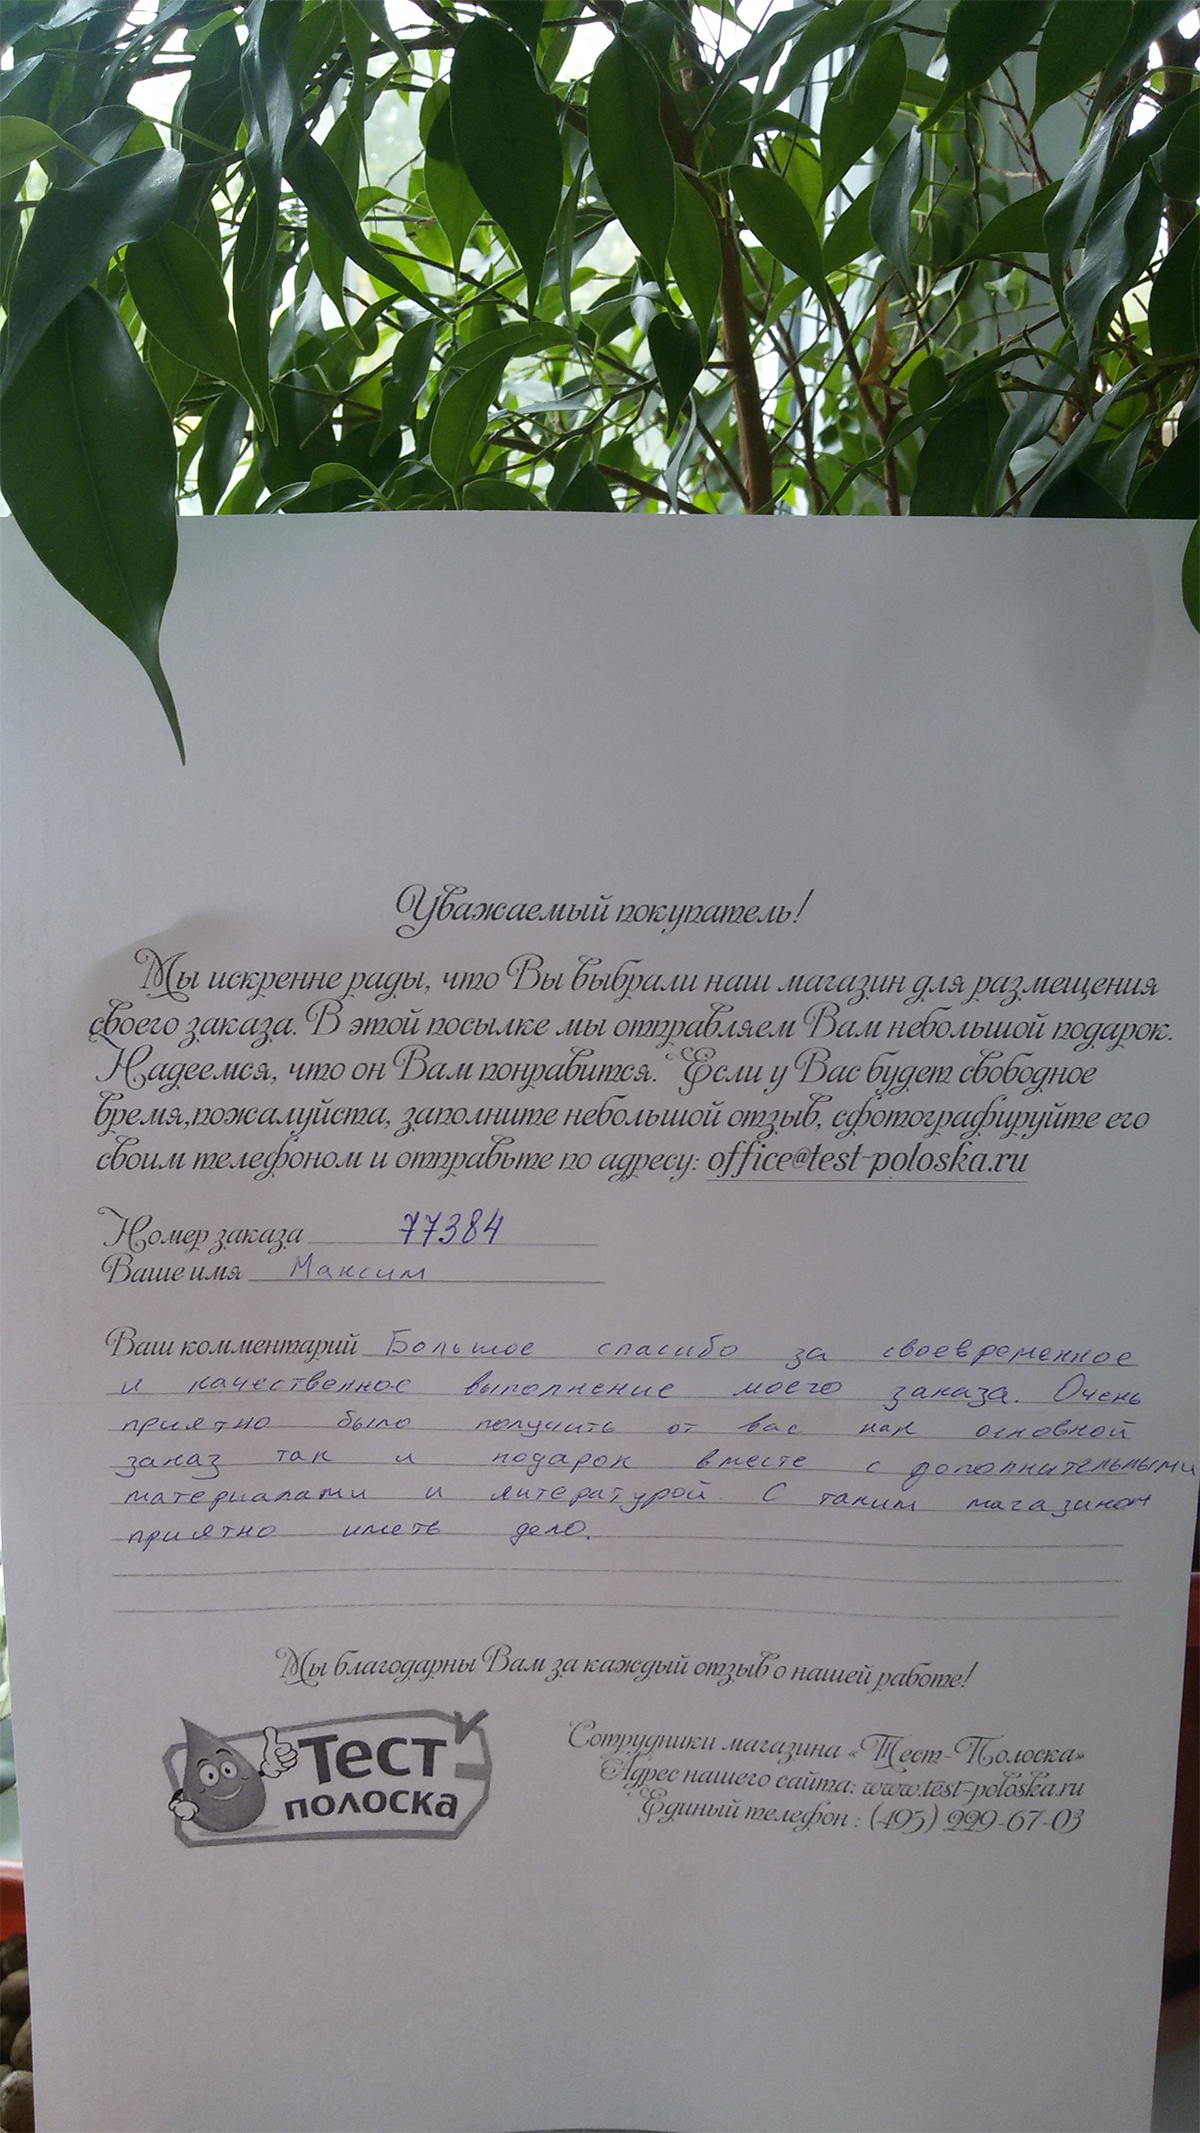 Уважаемый покупатель!
Мы искренне рады, что Вы выбрали наш магазин для размещения
своего заказа. В этой посылке мы отправляем Вам небольшой подарок.
Надеемся, что он Вам понравится. Если у Вас будет свободное
время,пожалуйста, заполните небольшой отзыв, сфотографируйте его
своим телефоном и отправьте по адресу: office@test-poloska.ru
Номер заказа 77384
Ваше имя Максим
Ваш комментарий Большое спасибо за своевременное
и качественное выполнение моего заказа. Очень
приятно было получить от вас как основной
заказ так и подарок вместе с дополнительными
материалами и литературой. С таким магазином
приятно иметь дело.
Мы благодарны Вам за каждый отзыв о нашей работе!
Тест
полоска
Сотрудники магазина «Тест-Полоска»
Адрес нашего сайта: www.test-poloska.ru
Единый телефон : (495) 229-67-03